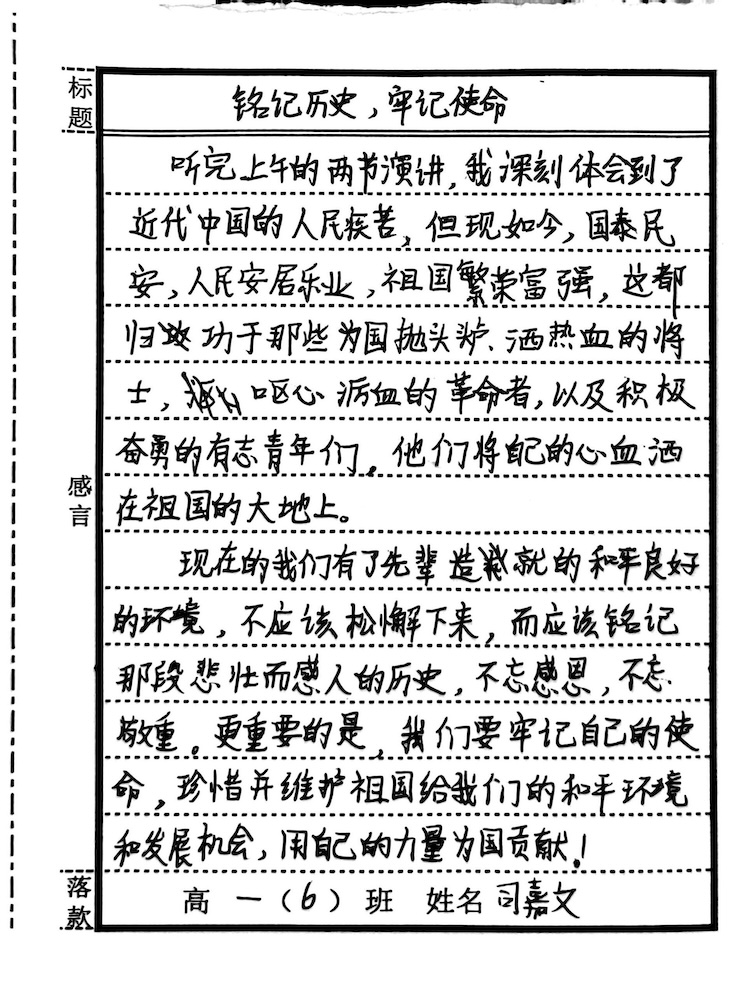 标题
铭记历史，牢记使命
听完上午的两节演讲，我深刻体会到了
近代中国的人民疾苦，但现如今，国泰民
安，人民安居乐业，祖国繁荣富强，这都
归功于那些为国抛头颅、洒热血的将
士，呕心沥血的革命者，以及积极
奋勇的有志青年们，他们将自己的心血洒
在祖国的大地上。
感言
现在的我们有了先辈造就的和平良好
的环境，不应该松懈下来，而应该铭记
那段悲壮而感人的历史，不忘感恩，不忘
敬重。更重要的是，我们要牢记自己的使
命，珍惜并维护祖国给我们的和平环境
和发展机会，用自己的力量为国贡献！
落款
高一（6）班 姓名 司嘉文